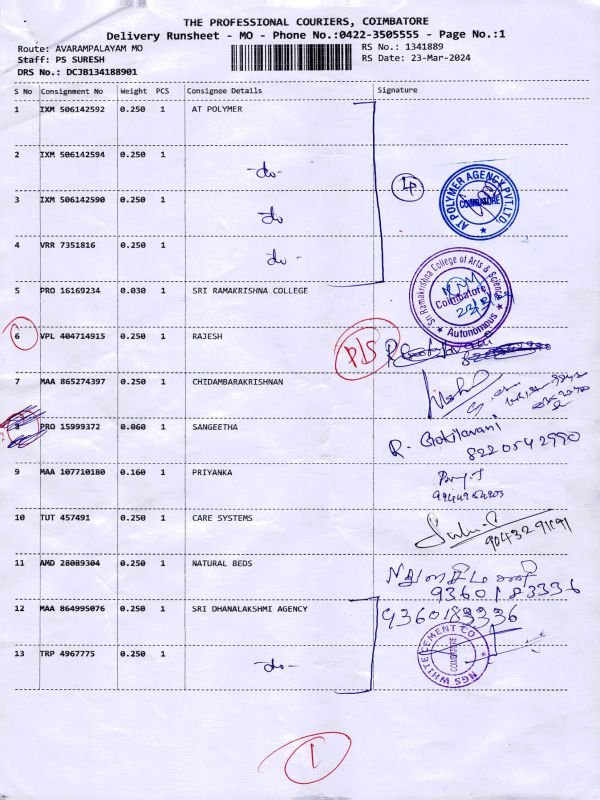 THE PROFESSIONAL COURIERS, COIMBATORE
Delivery Runsheet - MO - Phone No.:0422-3505555 - Page No.:1
Route: AVARAMPALAYAM MO
Staff: PS SURESH
DRS No.: DCJB134188901
RS No.: 1341889
RS Date: 23-Mar-2024
S No Consignment No Weight PCS Consignee Details Signature
1 IXM 506142592 0.250 1 AT POLYMER
2 IXM 506142594 0.250 1 -do-
3 IXM 506142590 0.250 1 do
4 VRR 7351816 0.250 1 do -
AT POLYMER AGENCY PVT.LTD.
COIMBATORE
5 PRO 16169234 0.030 1 SRI RAMAKRISHNA COLLEGE
Sri Ramakrishna College of Arts & Science
Coimbatore
Autonomous
6 VPL 404714915 0.250 1 RAJESH
7 MAA 865274397 0.250 1 CHIDAMBARAKRISHNAN
8 PRO 15999372 0.060 1 SANGEETHA R. Gokilavani
8220542990
9 MAA 107710180 0.160 1 PRIYANKA
10 TUT 457491 0.250 1 CARE SYSTEMS
9043291191
11 AMD 28089304 0.250 1 NATURAL BEDS
9360183336
12 MAA 864995076 0.250 1 SRI DHANALAKSHMI AGENCY 9360183336
13 TRP 4967775 0.250 1 do-
NGS WHITE CEMENT CO
COIMBATORE
1